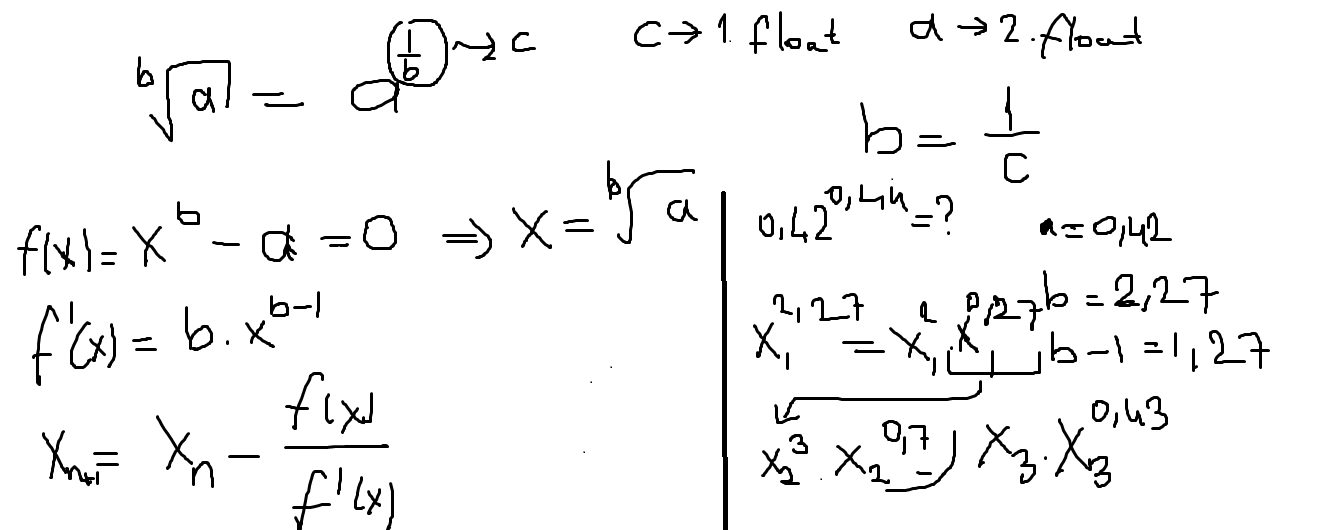 ᵇ√a = a^(1/b) → c    c → 1. float    a → 2. float
b = 1/c
f(x) = x^b - a = 0 ⇒ x = ᵇ√a
f'(x) = b . x^(b-1)
x_(n+1) = x_n - f(x)/f'(x)
0,42^0,44 = ?    a = 0,42
b = 2,27
x₁^2,27 = x₁^2 . x^0,27    b-1 = 1,27
x₂^3 . x₂^0,7    x₃ . x₃^0,43